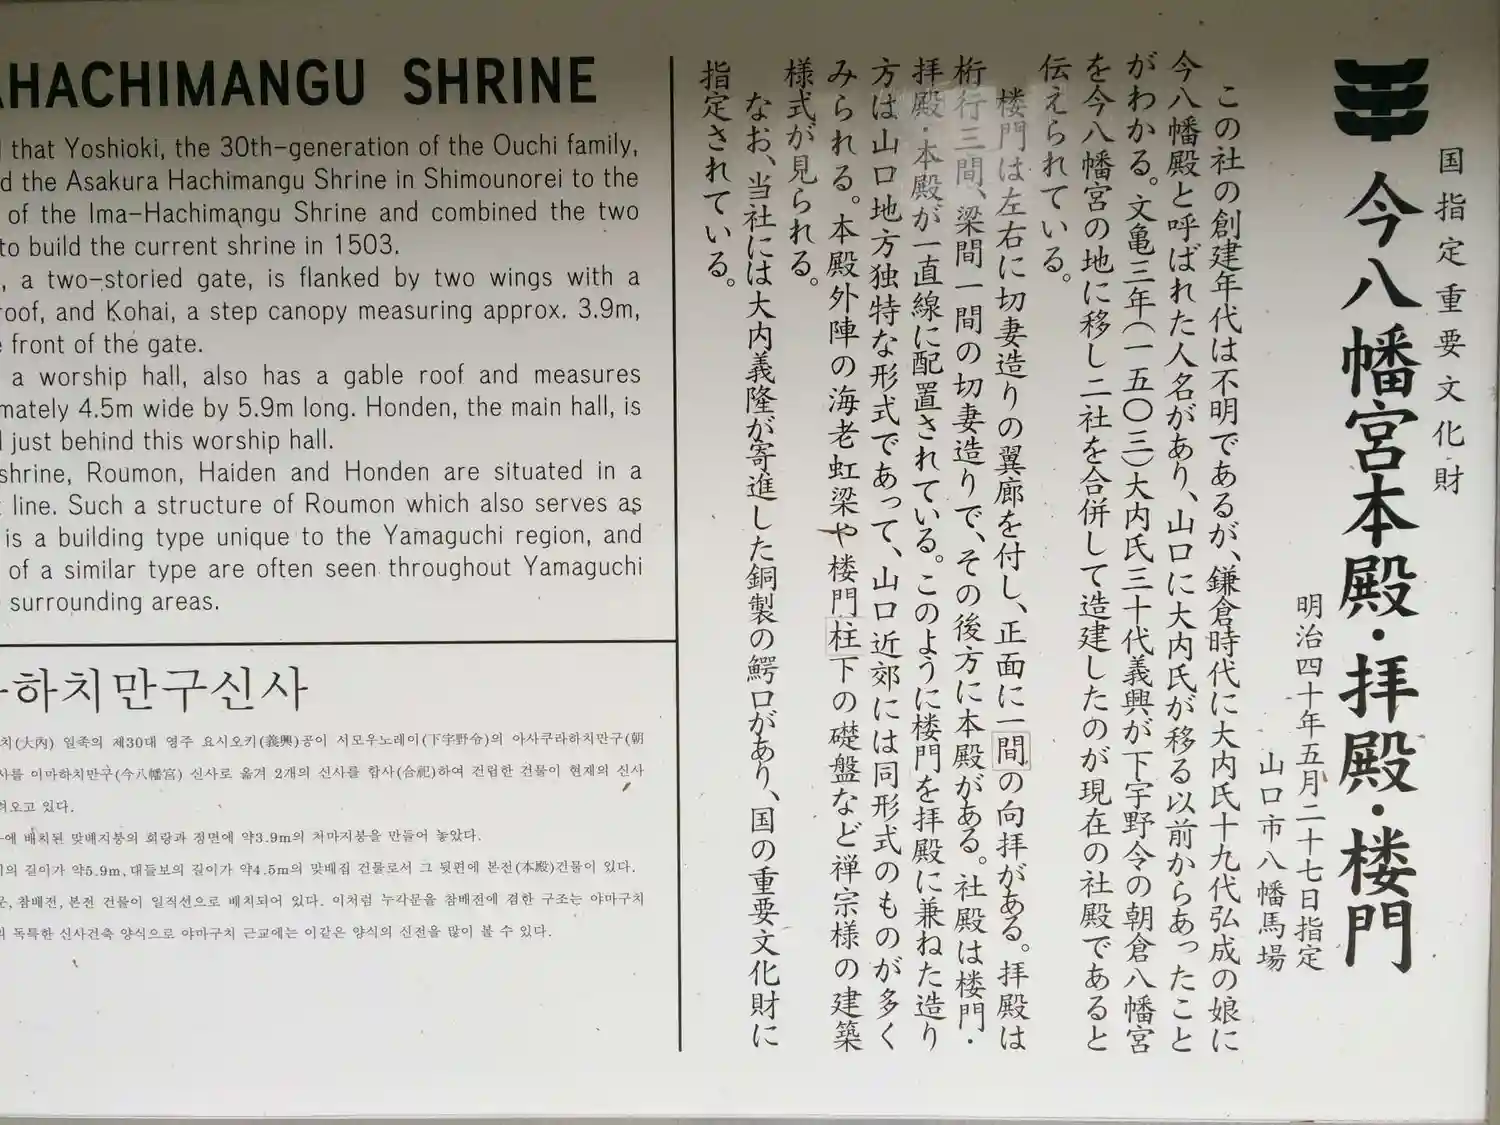 国指定重要文化財
今八幡宮本殿・拝殿・楼門
明治四十年五月二十七日指定
山口市八幡馬場
この社の創建年代は不明であるが、鎌倉時代に大内氏十九代弘成の娘に
今八幡殿と呼ばれた人名があり、山口に大内氏が移る以前からあったこと
がわかる。文亀三年(一五〇三)大内氏三十代義興が下宇野令の朝倉八幡宮
を今八幡宮の地に移し二社を合併して造建したのが現在の社殿であると
伝えられている。
楼門は左右に切妻造りの翼廊を付し、正面に一間の向拝がある。拝殿は
桁行三間、梁間一間の切妻造りで、その後方に本殿がある。社殿は楼門・
拝殿・本殿が一直線に配置されている。このように楼門を拝殿に兼ねた造り
方は山口地方独特な形式であって、山口近郊には同形式のものが多く
みられる。本殿外陣の海老虹梁や楼門柱下の礎盤など禅宗様の建築
様式が見られる。
なお、当社には大内義隆が寄進した銅製の鰐口があり、国の重要文化財に
指定されている。
HACHIMANGU SHRINE
that Yoshioki, the 30th-generation of the Ouchi family,
the Asakura Hachimangu Shrine in Shimounorei to the
of the Ima-Hachimangu Shrine and combined the two
to build the current shrine in 1503.
, a two-storied gate, is flanked by two wings with a
roof, and Kohai, a step canopy measuring approx. 3.9m,
front of the gate.
a worship hall, also has a gable roof and measures
mately 4.5m wide by 5.9m long. Honden, the main hall, is
just behind this worship hall.
shrine, Roumon, Haiden and Honden are situated in a
line. Such a structure of Roumon which also serves as
is a building type unique to the Yamaguchi region, and
of a similar type are often seen throughout Yamaguchi
surrounding areas.
하치만구신사
치(大內) 일족의 제30대 영주 요시오키(義興)공이 시모우노레이(下宇野令)의 아사쿠라하치만구(朝
사를 이마하치만구(今八幡宮) 신사로 옮겨 2개의 신사를 합사(合祀)하여 건립한 건물이 현재의 신사
려오고 있다.
에 배치된 맞배지붕의 회랑과 정면에 약3.9m의 처마지붕을 만들어 놓았다.
의 길이가 약5.9m, 대들보의 길이가 약4.5m의 맞배집 건물로서 그 뒷편에 본전(本殿)건물이 있다.
문, 참배전, 본전 건물이 일직선으로 배치되어 있다. 이처럼 누각문을 참배전에 겸한 구조는 야마구치
의 독특한 신사건축 양식으로 야마구치 근교에는 이같은 양식의 신전을 많이 볼 수 있다.